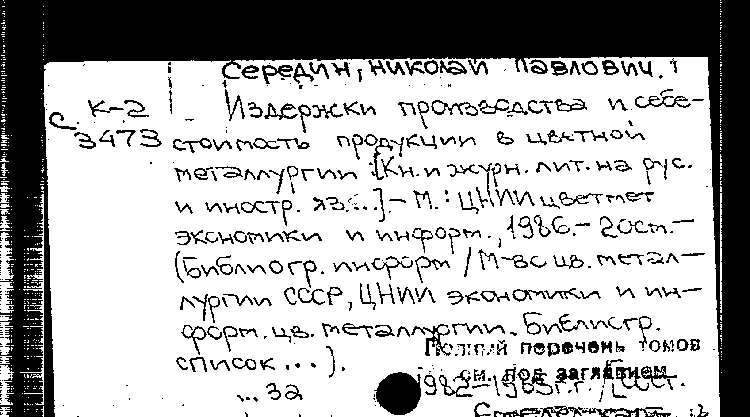 Середин, Николай Павлович.
К-2 Издержки производства и себе-
С 3473 стоимость продукции в цветной
металлургии: [Кн. и журн. лит. на рус.
и иностр. яз. ...] - М.: ЦНИИцветмет
экономики и информ., 1986. - 20см. -
(Библиогр. информ / М-во цв. метал-
лургии СССР, ЦНИИ экономики и ин-
форм. цв. металлургии. Библиогр.
список ...).
Полный перечень томов
см. под заглавием
... 32 1982-1985г.г. /